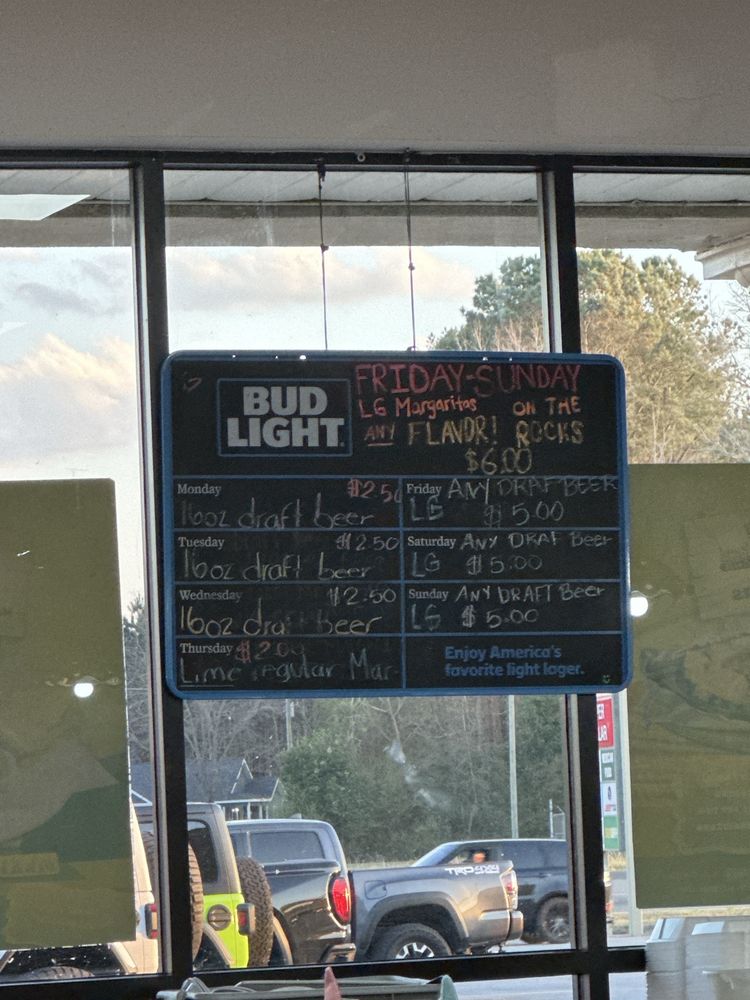 BUD
LIGHT
FRIDAY-SUNDAY
LG Margaritas ON THE
ANY FLAVOR! ROCKS
$6.00
Monday $2.50
16oz draft beer
Tuesday $2.50
16oz draft beer
Wednesday $2.50
16oz draf beer
Thursday $2.00
Lime regular Mar
Friday ANY DRAF BEER
LG $5.00
Saturday ANY DRAF Beer
LG $5.00
Sunday ANY DRAFT Beer
LG $5.00
Enjoy America's
favorite light lager.
TRD 4X4